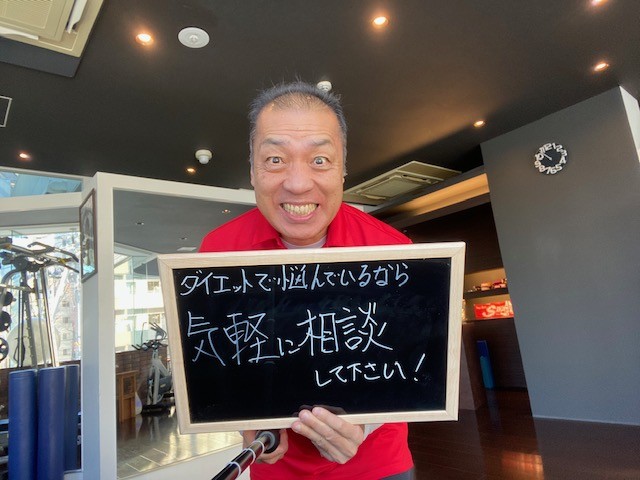 ダイエットで悩んでいるなら
気軽に相談
して下さい!